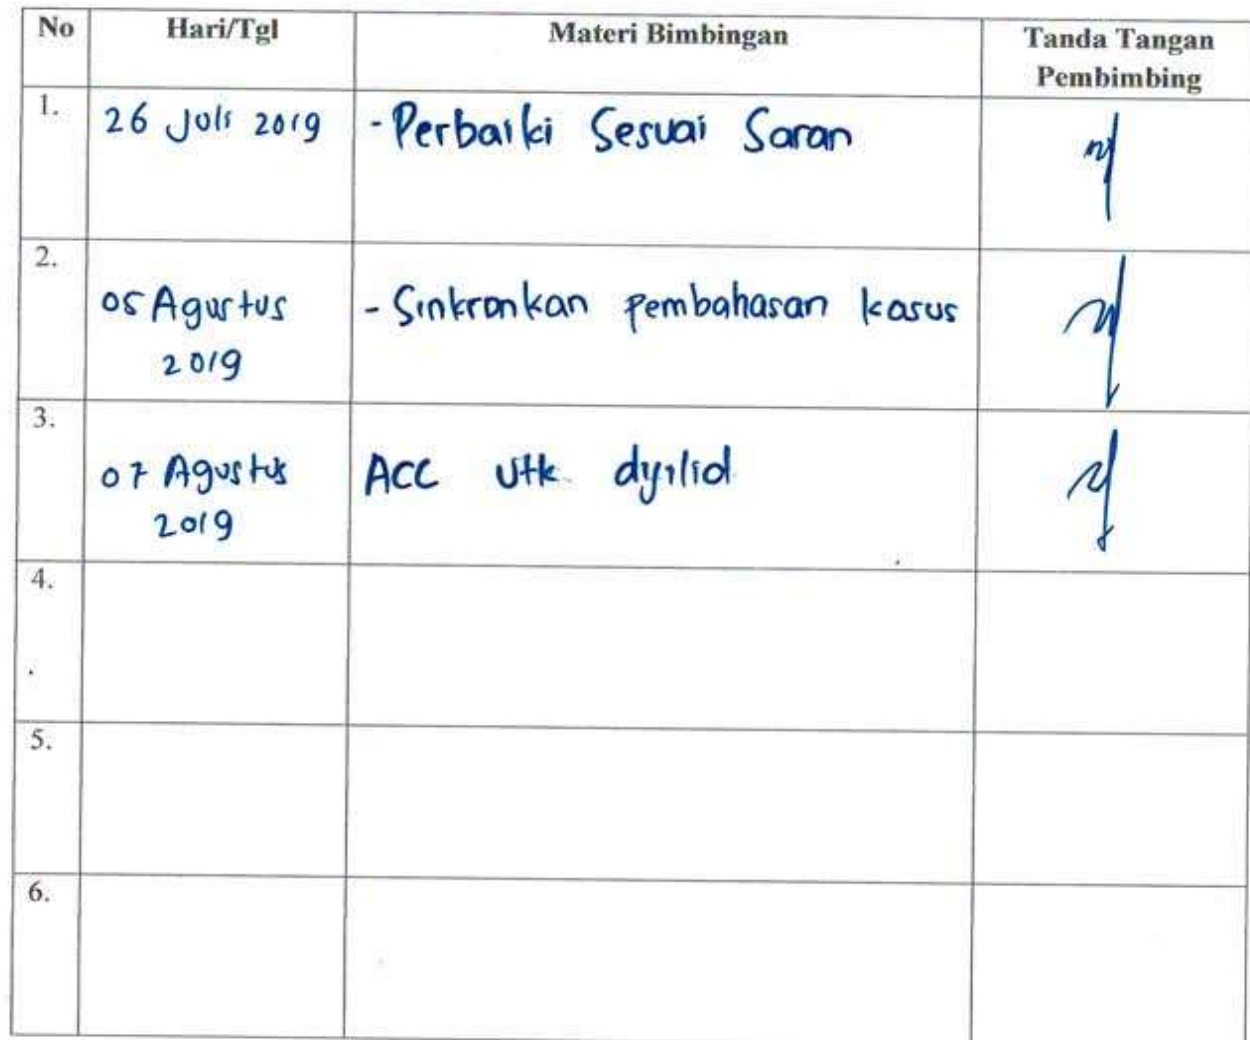 No Hari/Tgl Materi Bimbingan Tanda Tangan
Pembimbing
1. 26 Juli 2019 - Perbaiki Sesuai Saran
2.
05 Agustus - Sinkronkan pembahasan kasus
2019
3.
07 Agustus ACC Utk dijilid
2019
4.
5.
6.